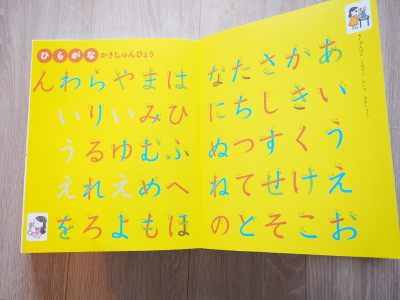 ひらがな かきじゅんひょう
あいうえお
かきくけこ
さしすせそ
たちつてと
なにぬねの
はひふへほ
まみむめも
やいゆえよ
らりるれろ
わいうえを
ん